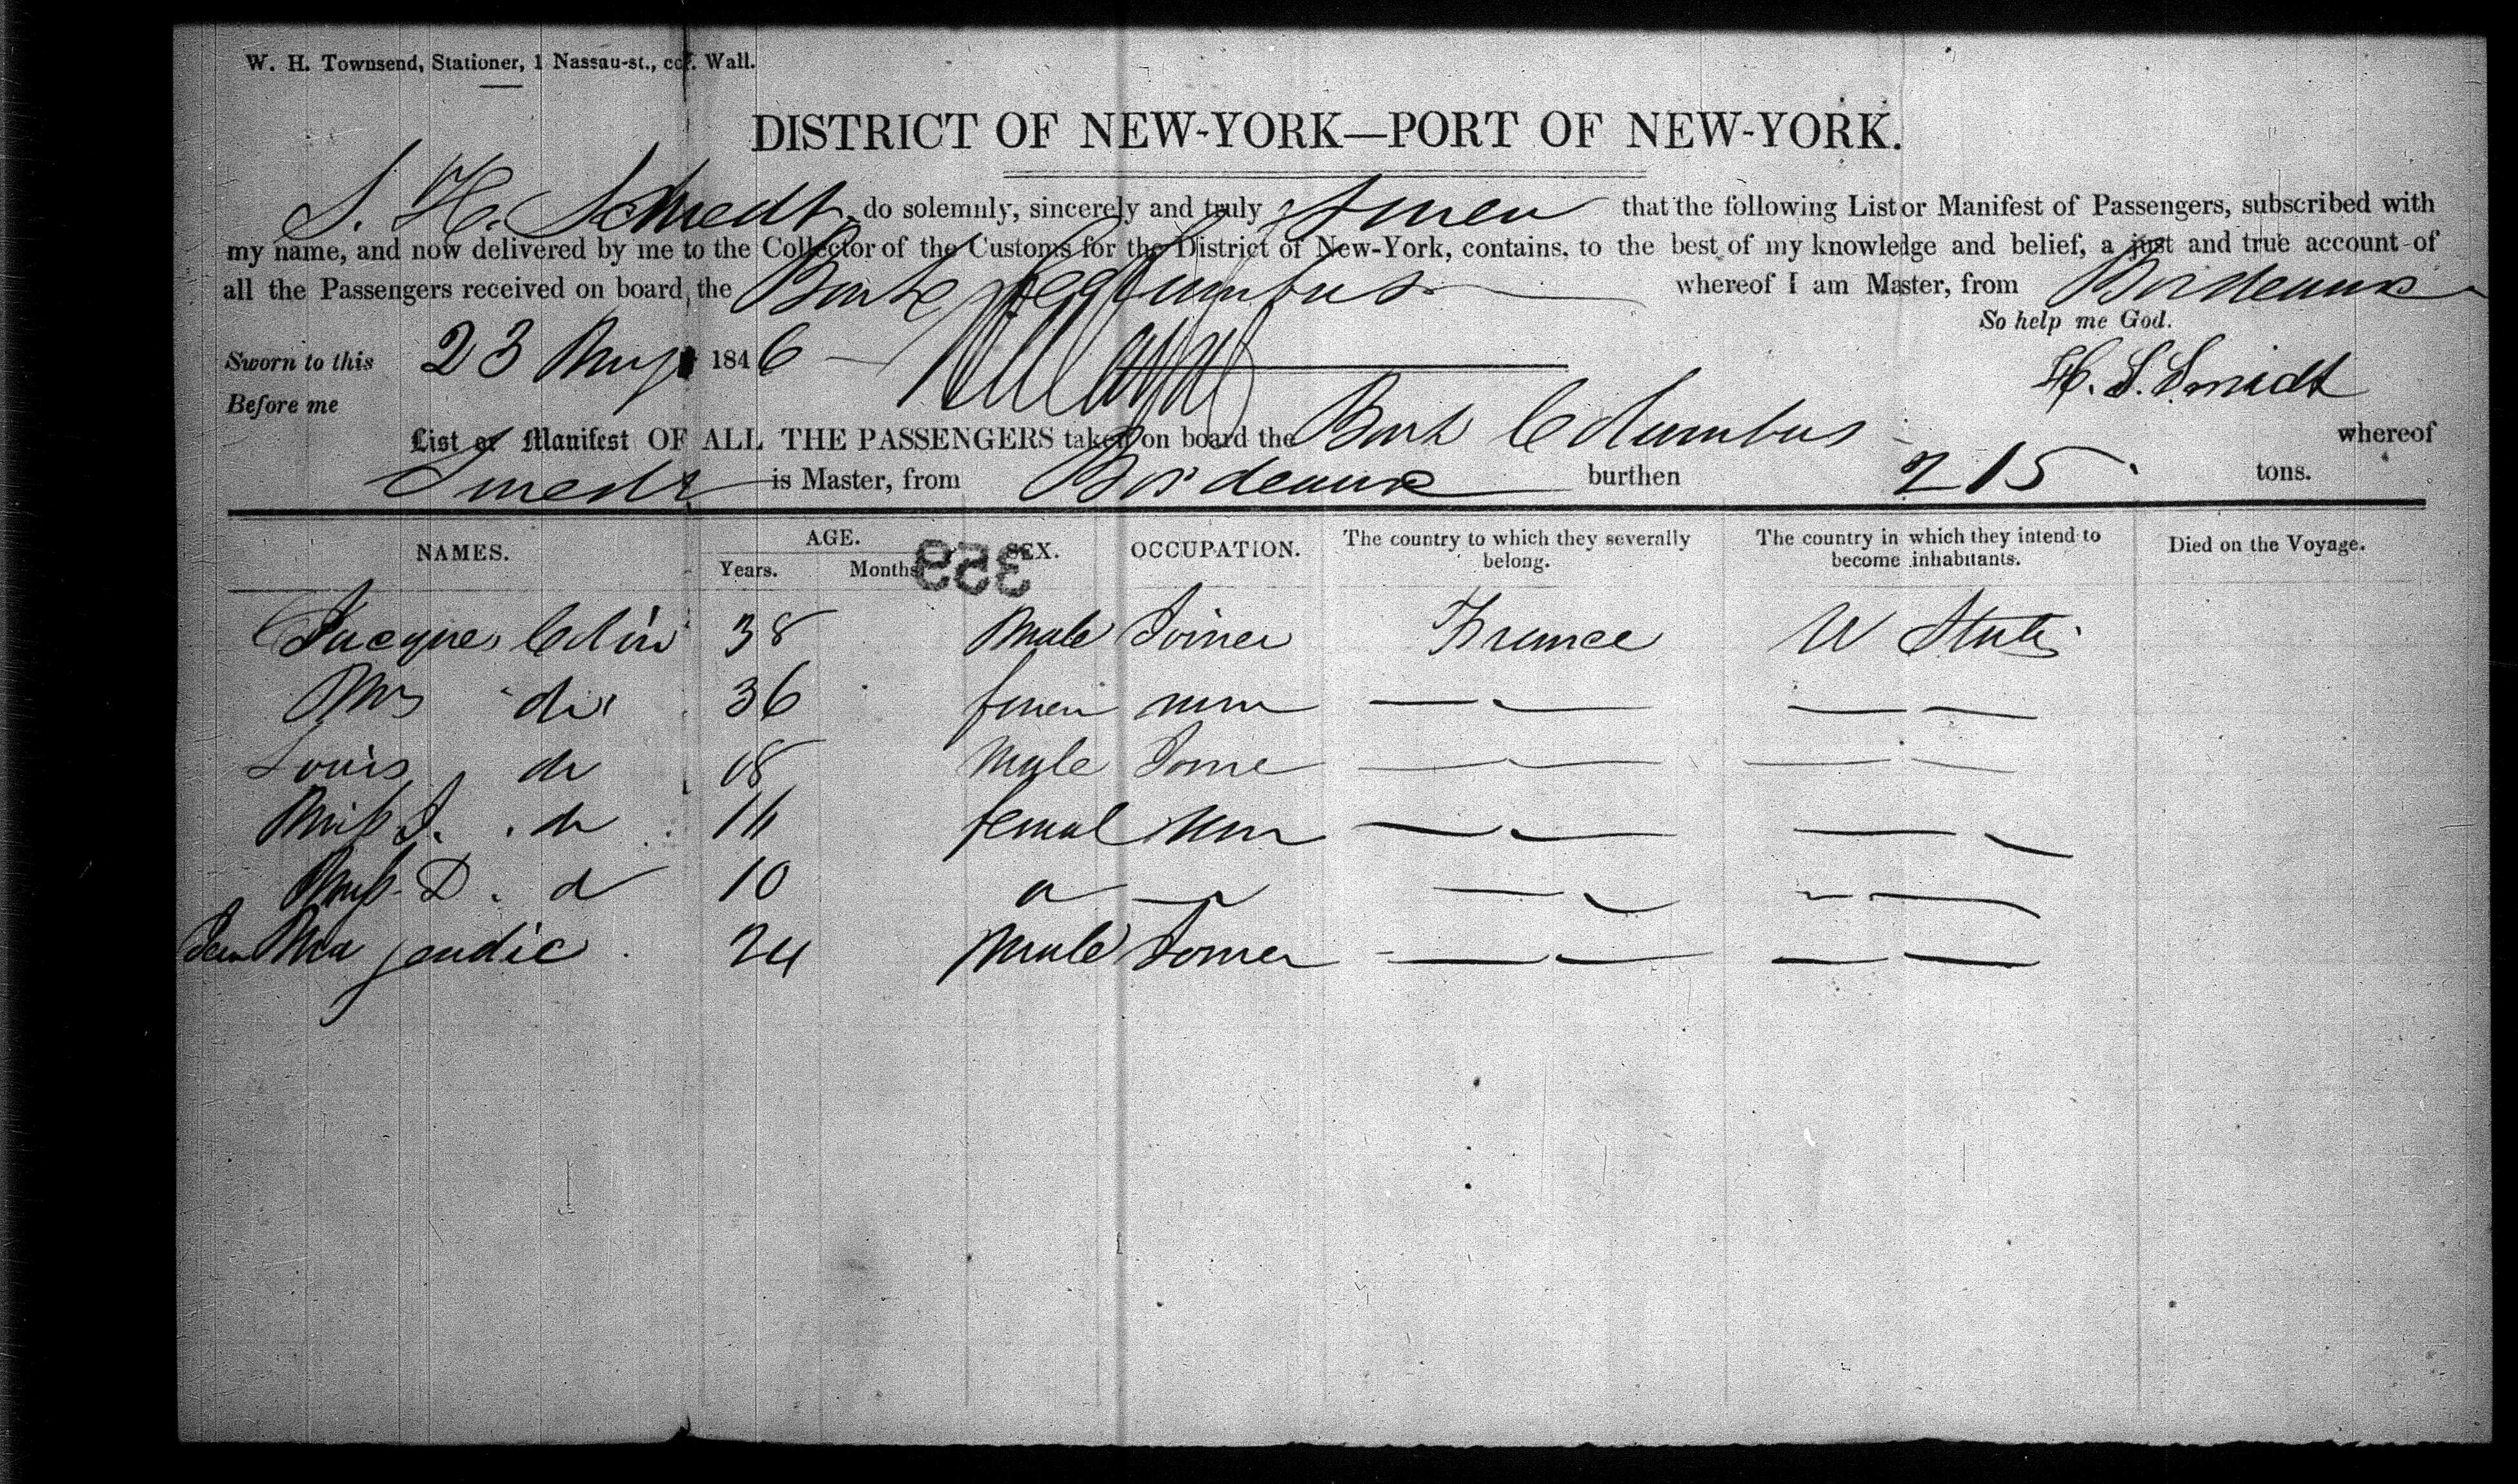 W. H. Townsend, Stationer, 1 Nassau-st., cor. Wall.
DISTRICT OF NEW-YORK—PORT OF NEW-YORK.
S. H. Schmedt do solemnly, sincerely and truly swear that the following List or Manifest of Passengers, subscribed with
my name, and now delivered by me to the Collector of the Customs for the District of New-York, contains, to the best of my knowledge and belief, a just and true account of
all the Passengers received on board the Bark Columbus whereof I am Master, from Bordeaux
So help me God.
Sworn to this 23 May 1846 H. S. Smidt
Before me
List or Manifest OF ALL THE PASSENGERS taken on board the Bark Columbus whereof
Smedt is Master, from Bordeaux burthen 215 tons.
NAMES. AGE. SEX. OCCUPATION. The country to which they severally belong. The country in which they intend to become inhabitants. Died on the Voyage.
Years. Months.
359
Jacques Colin 38 Male Joiner France U States
Mrs do 36 femal none
Louis do 18 Male Joine
Miss J. do femal non
Miss D. d 10
Jean 24 Male Joiner